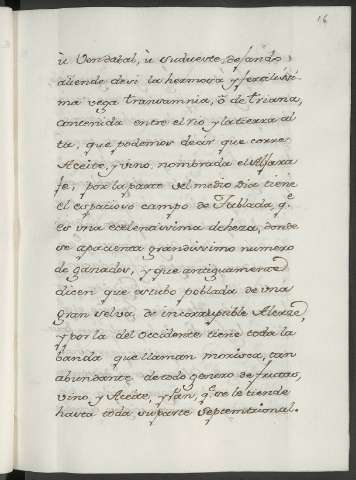 16
ù Vendabal, ù sudueste, dejando
allende desi la hermosa y fertilissi
ma vega transamnia, ò de triana,
contenida entre el rio y la tierra al
ta, que podemos decir que corre
Aceite, y vino, nombrada el Aljaxa
fe; por la parte del medio Dia tiene
el espacioso campo de Tablada, q.e
es una ecelentissima dehesa, donde
se apacienta grandissimo numero
de ganados, y que antiguamente
dicen que estubo poblada de una
gran selva de incorruptible Alerze,
y por la del occidente tiene toda la
banda que llaman morisca, tan
abundante de todo genero de frutas,
vino, y Aceite, y pan, q.e se le tiende
hasta toda su parte Septemtrional.